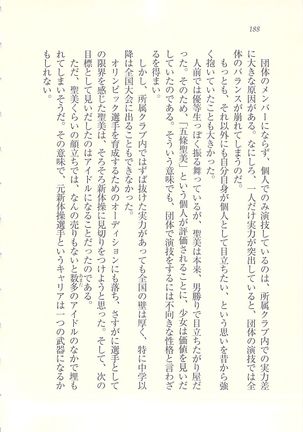 188
団体のメンバーにならず、個人でのみ演技しているのは、所属クラブ内での実力差
に大きな原因がある。なにしろ、一人だけ実力が突出していると、団体の演技では全
体のバランスが崩れてしまうのだ。
もっとも、それ以外にも自分自身が個人として目立ちたい、という思いを昔から強
く抱いていたことも大きかった。
人前では優等生っぽく振る舞っているが、聖美は本来、男勝りで目立ちたがり屋だ
った。そのため、「五條聖美」という個人が評価されることに、少女は価値を見いだ
していたのである。そういう意味でも、団体で演技をするには不向きな性格と言わざ
るを得まい。
しかし、所属クラブ内ではずば抜けた実力があっても全国の壁は厚く、特に中学以
降は全国大会に出ることもできなかった。
オリンピック選手を育成するためのオーディションにも落ち、さすがに選手として
の限界を感じた聖美は、そろそろ新体操に見切りをつけようと思った。そして、次の
目標として見いだしたのはアイドルになることだったのである。
ただ、聖美くらいの顔立ちでは、なんの売りもないと数多のアイドルのなかで埋も
れてしまいそうだ。その意味で、元新体操選手というキャリアは一つの武器になるか
もしれない。